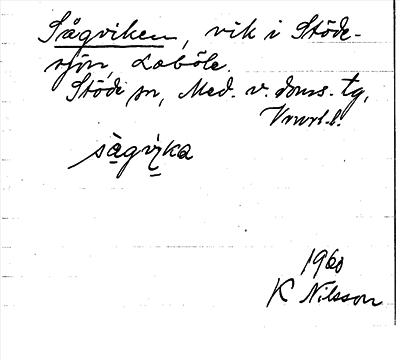 Sågviken, vik i Stöde-
sjön, Loböle.
Stöde sn, Med. v. doms. tg,
Vnorl.l.
sàgvi̱ka
1960
K Nilsson